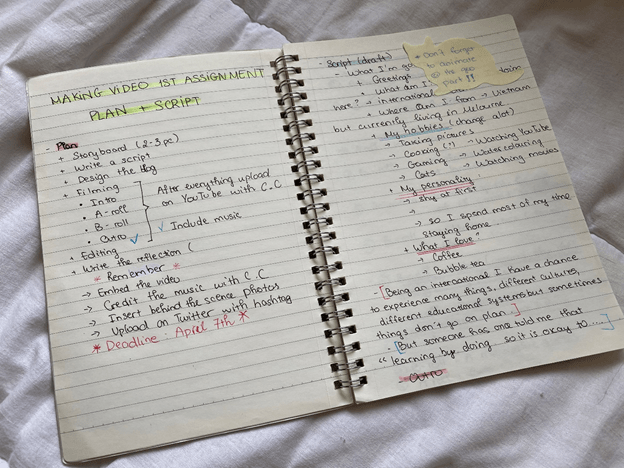 MAKING VIDEO 1ST ASSIGNMENT
PLAN + SCRIPT
- Plan
+ Storyboard (2-3 pc)
+ Write a script
+ Design the blog
+ Filming
• Intro
• A-roll
• B-roll
• Outro
After everything upload
on YouTube with C.C
Include music
+ Editing
+ Write the reflection (
* Remember *
→ Embed the video
→ Credit the music with C.C
→ Insert behind the scene photos
→ Upload on Twitter with hashtag
* Deadline: April 7th *
- Script (draft)
- What I'm go
+ Greetings
+ What am I
here? → internation
+ Where am I from → Vietnam
but currently living in Melbourne
* Don't forget
to animate
@ the geo
part !!
+ My hobbies (change alot)
→ Taking pictures
→ Cooking (?) → Watching YouTube
→ Gaming → Watercolouring
→ Cats → Watching movies
+ My personality
→ Shy at first
→
→ so I spend most of my time
staying home
+ What I love
→ Coffee
→ Bubble tea
- [Being an international I have a chance
to experience many things, different cultures,
different educational systems but sometimes
things don't go on plan.]
- [But someone has one told me that
" learning by doing so it is okay to....]
Outro